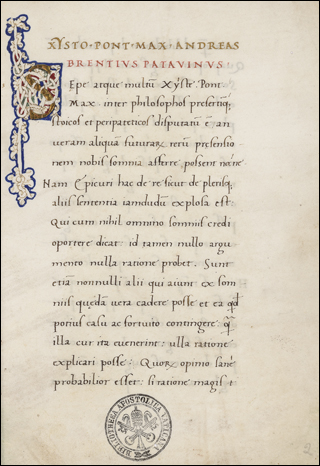 XYSTO·PONT·MAX·ANDREAS
BRENTIVS PATAVINVS
Sepe atque multũ Xyste Pont
Max inter philosophos presertiq;
stoicos et peripateticos disputatũ ẽ an
ueram aliquã futurarꝝ rerũ presensio
nem nobis somnia afferre possent necne
Nam Epicuri hac de re sicut de plerisq;
aliis sententia iamdudũ explosa est:
Qui cum nihil omnino somniis credi
oportere dicat id tamen nullo argu
mento nulla ratione probet. Sunt
etiã nonnulli alii qui aiunt ex som
niis quędã uera cadere posse et ea qđ
potius casu ac fortuito contingere q̃
illa cur ita euenerint: ulla ratione
explicari posse: Quorꝝ opinio sanè
probabilior esset: si ratione magis
BIBLIOTHECA APOSTOLICA VATICANA